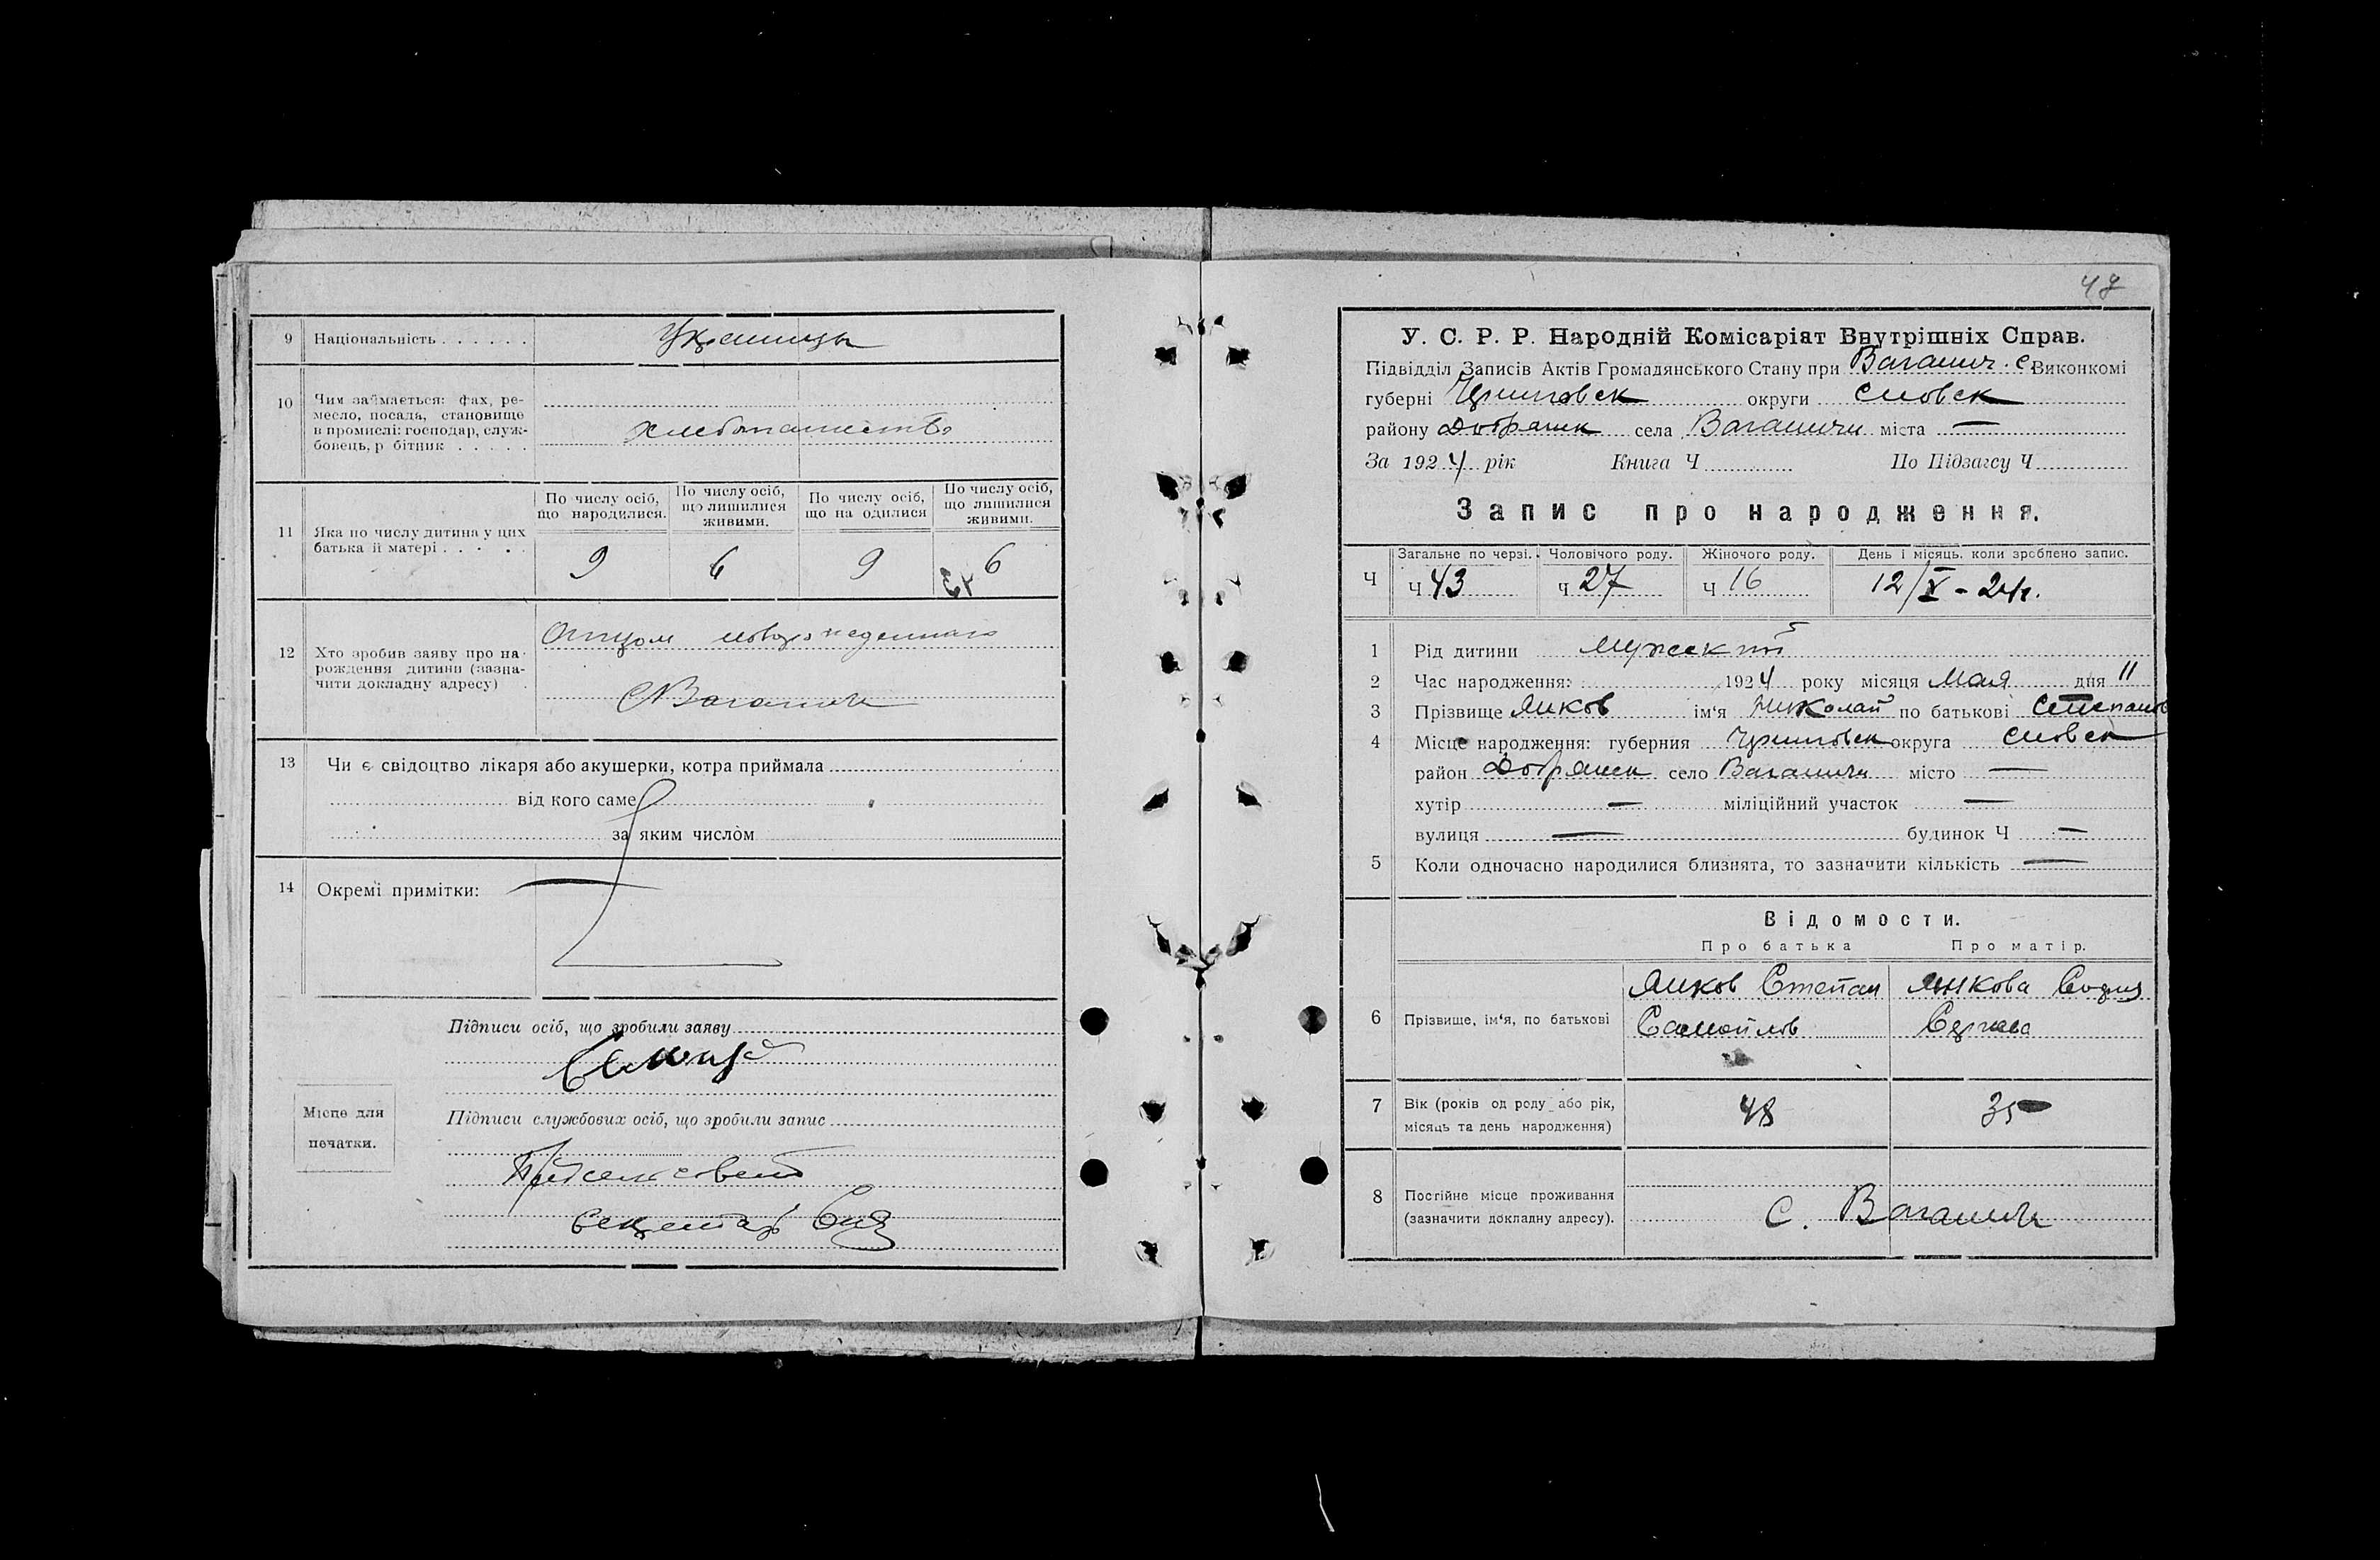 9 Національність . . . . . . Украинцы
10 Чим займається: фах, ре-
месло, посада, становище
в промислі: господар, служ-
бовець, р бітник . . . . . хлебопашество
11 Яка по числу дитина у цих
батька й матері . . . . .
По числу осіб, що народилися. По числу осіб, що лишилися живими. По числу осіб, що на одилися По числу осіб, що лишилися живими.
9 6 9 6
12 Хто зробив заяву про на-
рождення дитини (зазна-
чити докладну адресу) .
Отцом новорожденнаго
с Ваганичи
13 Чи є свідоцтво лікаря або акушерки, котра приймала
від кого саме
за яким числом
14 Окремі примітки: —
Підписи осіб, що зробили заяву
Місце для
печатки.
Підписи службових осіб, що зробили запис
Предсельсовета
Секретарь
У. С. Р. Р. Народній Комісаріят Внутрішніх Справ.
Підвідділ Записів Актів Громадянського Стану при Ваганич. с. Виконкомі
губерні Черниговск округи Сновск
району Добрянск села Ваганичи міста —
За 1924 рік Книга Ч По Підзагсу Ч
Запис про народження.
Загальне по черзі. Чоловічого роду. Жіночого роду. День і місяць, коли зроблено запис.
Ч Ч 43 Ч 27 Ч 16 12/V - 24 г.
1 Рід дитини мужский
2 Час народження: 1924 року місяця Мая дня 11
3 Прізвище Янков ім‘я Николай по батькові Степанов
4 Місце народження: губерния Черниговск округа Сновск
район Добрянск село Ваганичи місто —
хутір — міліційний участок —
вулиця — будинок Ч —
5 Коли одночасно народилися близнята, то зазначити кількість —
Відомости.
Про батька Про матір.
6 Прізвище, ім‘я, по батькові
Янков Степан Янкова
Самойлов
7 Вік (років од роду або рік,
місяць та день народження) 48 35
8 Постійне місце проживання
(зазначити докладну адресу). с. Ваганичи